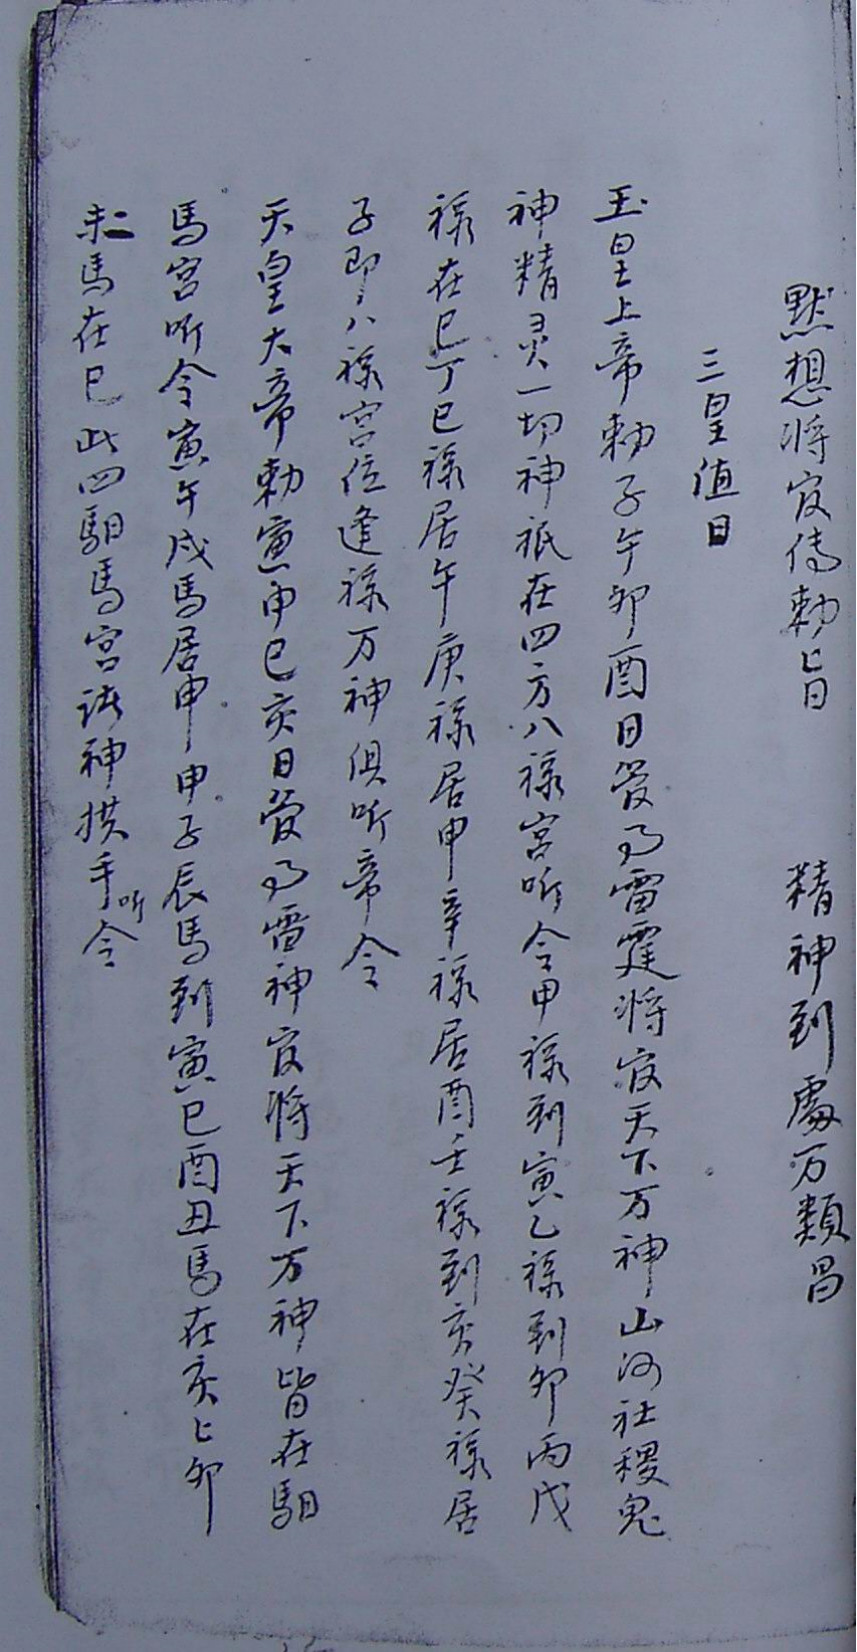 黙想将官傳勅旨　精神到處万類昌
三皇值日
玉皇上帝勅子午卯酉日管了雷霆将官天下万神山河社稷鬼
神精灵一切神祇在四方八禄宮听令甲禄到寅乙禄到卯丙戊
禄在巳丁巳禄居午庚禄居申辛禄居酉壬禄到亥癸禄居
子即八禄宮位逢禄万神俱听帝令
天皇大帝勅寅申巳亥日管了雷神官将天下万神皆在馹
馬宮听令寅午戌馬居申申子辰馬到寅巳酉丑馬在亥亡卯
未二馬在巳此四馹馬宮諸神拱手听令